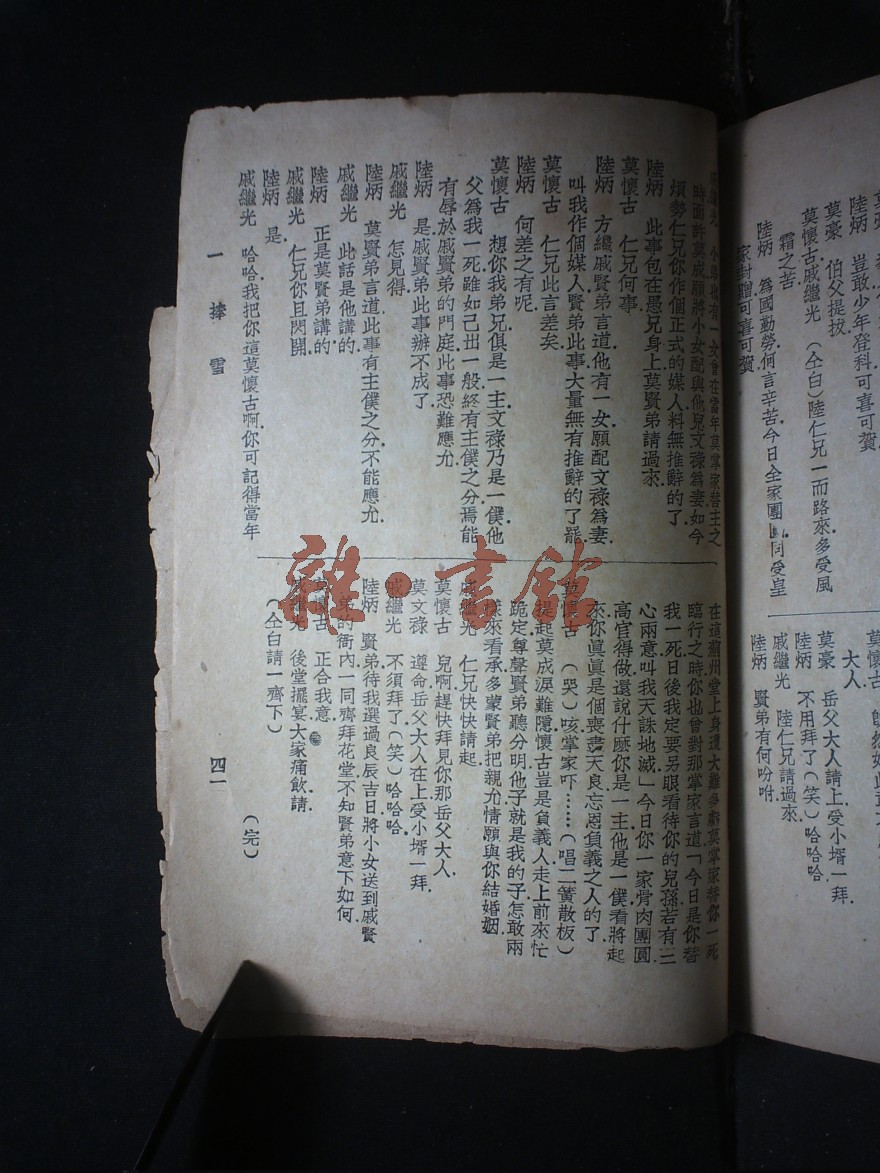 莫豪 伯父提拔
陸炳 豈敢少年登科可喜可賀
莫懷古戚繼光 (仝白)陸仁兄一而路來多受風
霜之苦
陸炳 爲國勤勞何言辛苦今日全家團 同受皇
家封贈可喜可賀
大人
莫豪 岳父大人請上受小壻一拜
陸炳 不用拜了(笑)哈哈哈
戚繼光 陸仁兄請過來
陸炳 賢弟有何吩咐
戚繼光 小弟也有一女曾在當年莫掌家替主之
時面許莫成願將小女配與他兒文祿爲妻如今
煩勢仁兄你作個正式的媒人料無推辭的了
陸炳 此事包在愚兄身上莫賢弟請過來
莫懷古 仁兄何事
陸炳 方纔戚賢弟言道他有一女願配文祿爲妻
叫我作個媒人賢弟此事大量無有推辭的了罷
莫懷古 仁兄此言差矣
陸炳 何差之有呢
莫懷古 想你我弟兄俱是一主文祿乃是一僕他
父爲我一死雖如己出一般終有主僕之分焉能
有辱於戚賢弟的門庭此事恐難應允
陸炳 是戚賢弟此事辦不成了
戚繼光 怎見得
陸炳 莫賢弟言道此事有主僕之分不能應允
戚繼光 此話是他講的
陸炳 正是莫賢弟講的
戚繼光 仁兄你且閃開
陸炳 是
戚繼光 哈哈我把你這莫懷古啊你可記得當年
在這薊州堂上身遭大難多虧莫掌家替你一死
臨行之時你也曾對那掌家言道「今日是你替
我一死日後我定要另眼看待你的兒孫若有三
心兩意叫我天誅地滅」今日你一家骨肉團圓
高官得做還說什麽你是一主他是一僕看將起
來你眞眞是個喪盡天良忘恩負義之人的了
莫懷古 (哭)咳掌家吓……(唱二簧散板)
提起莫成淚難隱懷古豈是負義人走上前來忙
跪定尊聲賢弟聽分明他子就是我的子怎敢兩
樣來看承多蒙賢弟把親允情願與你結婚姻
戚繼光 仁兄快快請起
莫懷古 兒啊趕快拜見你那岳父大人
莫文祿 遵命岳父大人在上受小壻一拜
戚繼光 不須拜了(笑)哈哈哈
陸炳 賢弟待我選過良辰吉日將小女送到戚賢
弟的衙內一同齊拜花堂不知賢弟意下如何
莫懷古 正合我意
戚繼光 後堂擺宴大家痛飲請
(仝白請一齊下)
(完)
一捧雪
四一
雜·書館